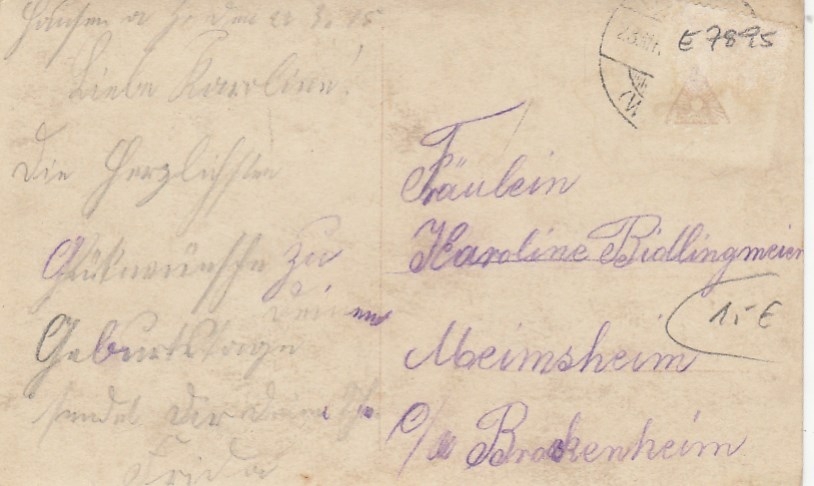 Hausen a Z, den 22 3. 15
Liebe Karoline!
Die Herzlichsten
Glükwünsche zu
deinem
Geburtstage
sendet Dir deine
Frida
E7895
Fräulein
Karoline Bidlingmeier
15 €
Meimsheim
O/A Brakenheim